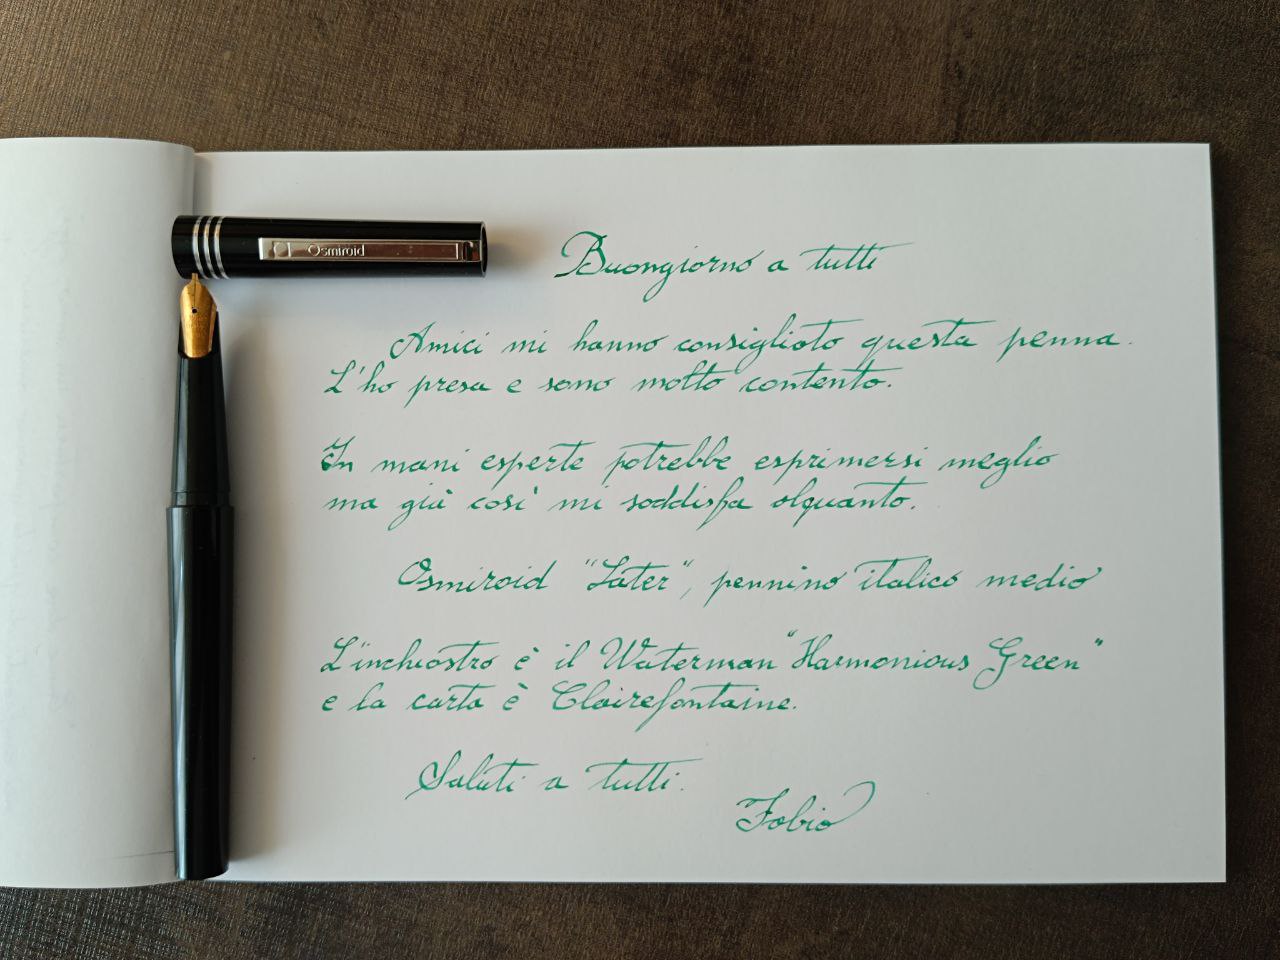 Osmiroid
Buongiorno a tutti
Amici mi hanno consigliato questa penna.
L'ho presa e sono molto contento.
In mani esperte potrebbe esprimersi meglio
ma già così mi soddisfa alquanto.
Osmiroid "Later", pennino italico medio
L'inchiostro è il Waterman "Harmonious Green"
e la carta è Clairefontaine.
Saluti a tutti.
Fabio